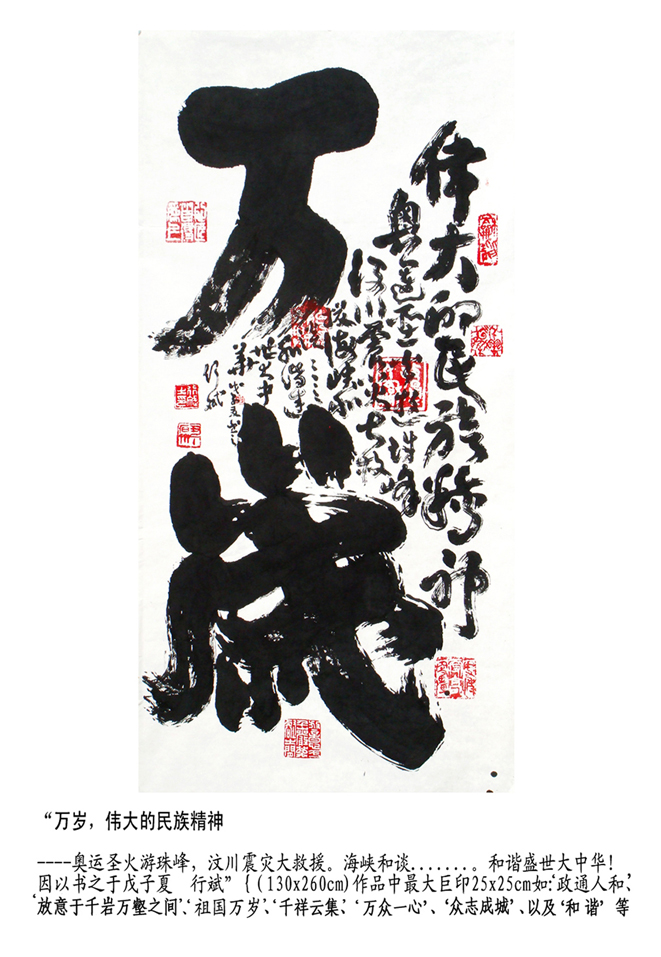 万
岁
伟大的民族精神
奥运圣火游珠峰
汶川震灾大救
援海峡和
谈……
和谐盛
世大中
华
行斌
“万岁，伟大的民族精神
----奥运圣火游珠峰，汶川震灾大救援。海峡和谈.......。和谐盛世大中华！
因以书之于戊子夏　行斌”{(130x260cm)作品中最大巨印25x25cm如:‘政通人和’、
‘放意于千岩万壑之间’、‘祖国万岁’、‘千祥云集’、‘万众一心’、‘众志成城’、以及‘和谐’等